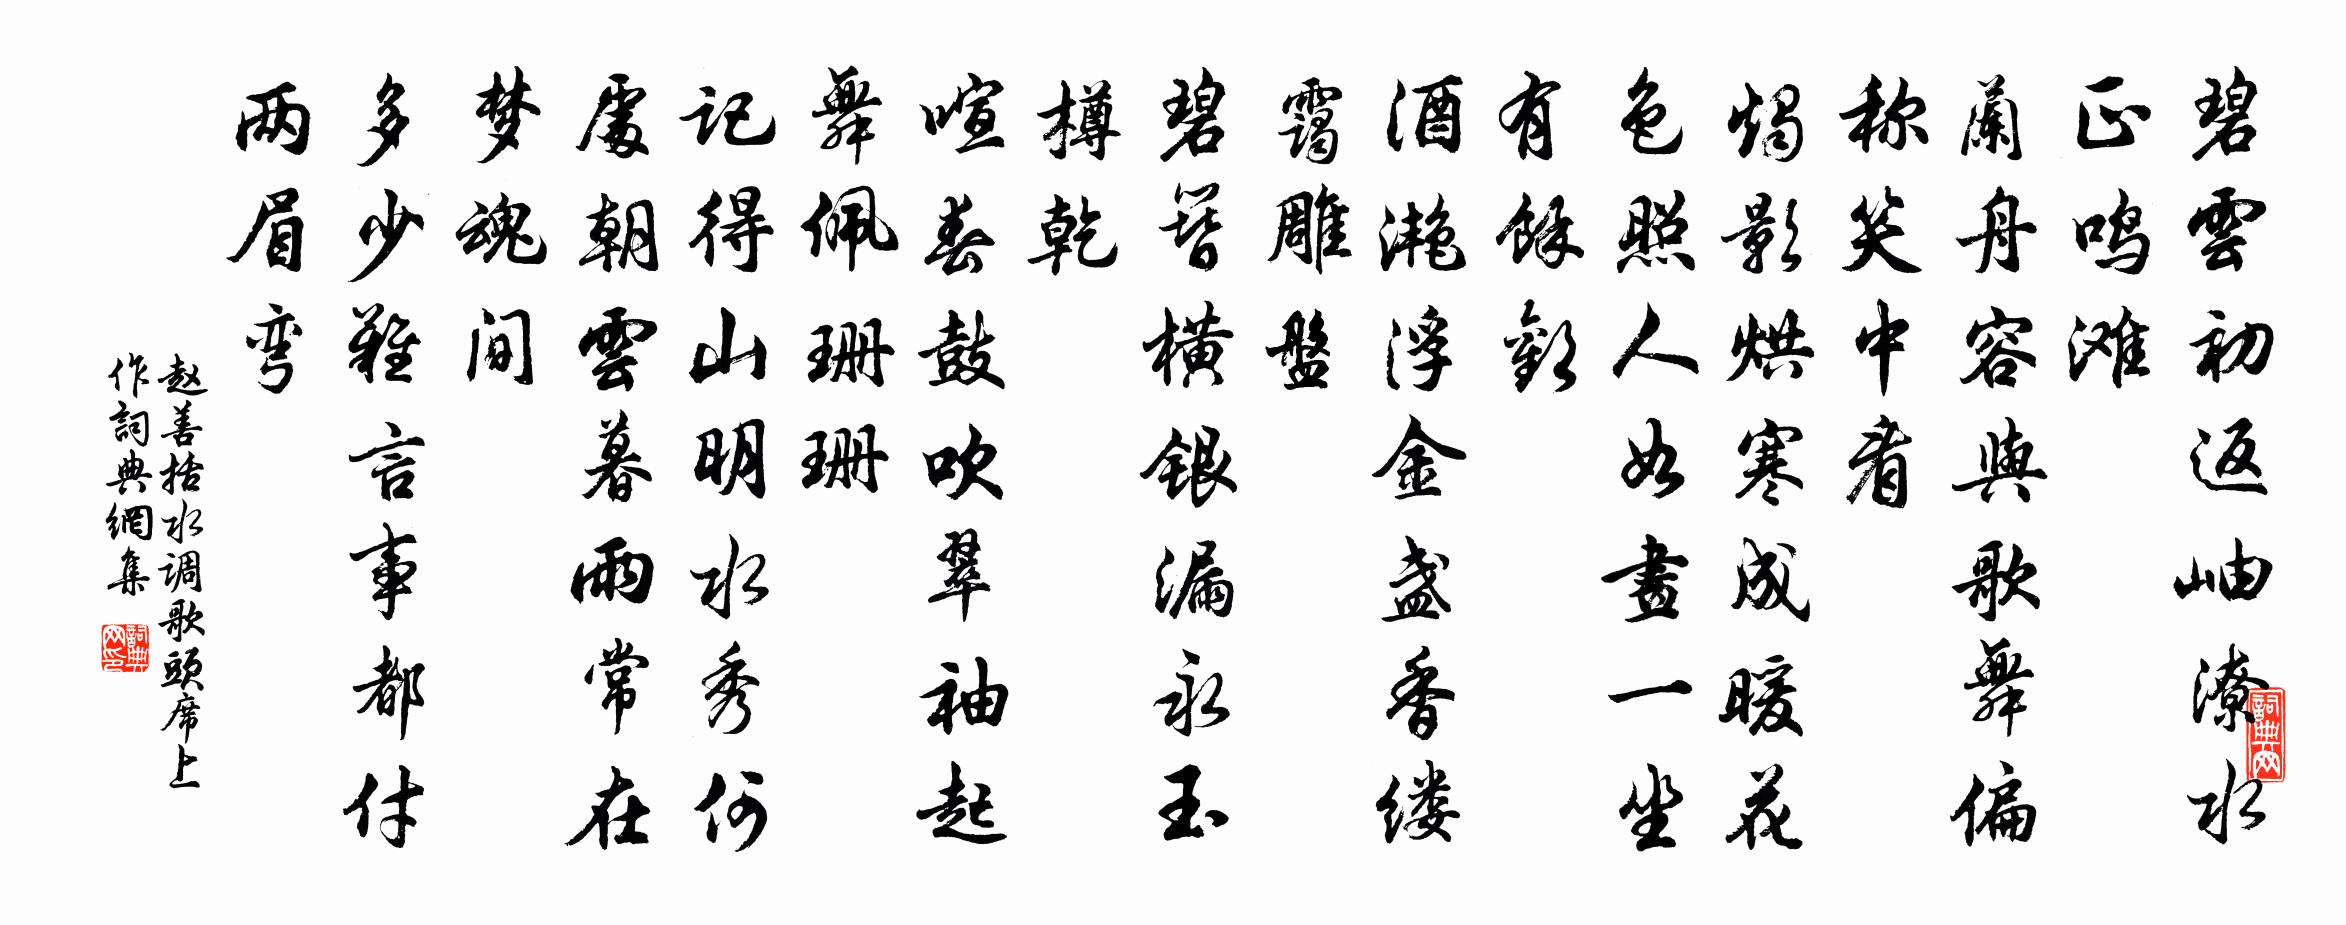 碧雲初返岫潦水
正鸣滩
蘭舟容與歌舞偏
称笑中看
燭影烘寒成暖花
色照人如畫一坐
有餘歡
酒滟浮金盏香缕
靄雕盤
碧簪横银漏永玉
樽乾
喧春鼓吹翠袖起
舞佩珊珊
记得山明水秀何
處朝雲暮雨常在
梦魂间
多少難言事都付
两眉弯
赵善括水调歌頭席上
作詞典網集
詞典网
詞典网印